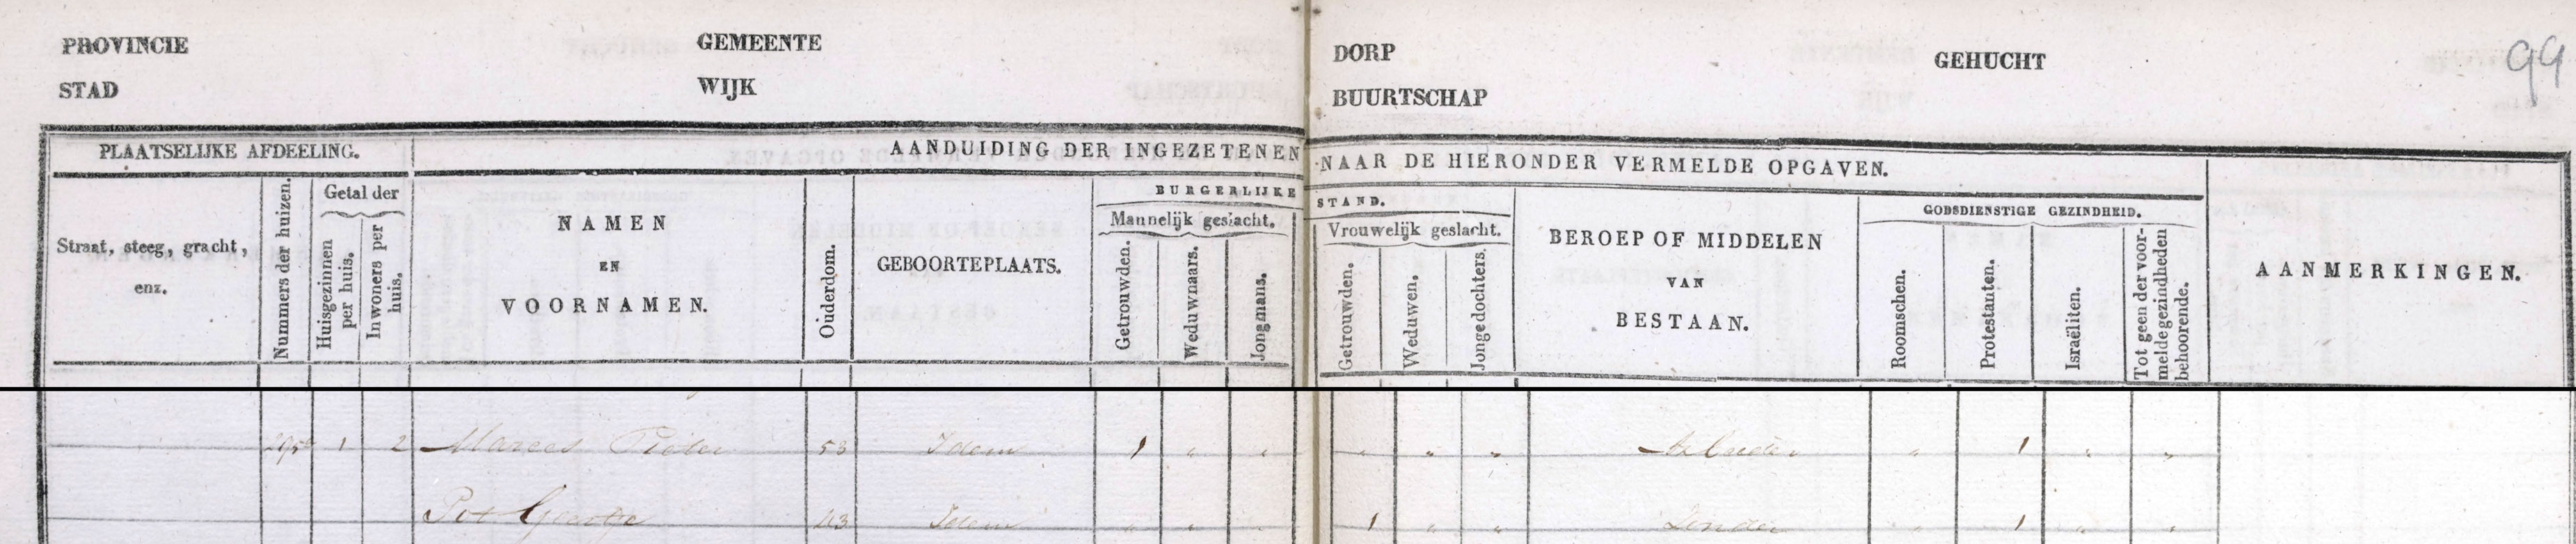 PROVINCIE GEMEENTE DORP GEHUCHT 99
STAD WIJK BUURTSCHAP
PLAATSELIJKE AFDEELING. AANDUIDING DER INGEZETENEN NAAR DE HIERONDER VERMELDE OPGAVEN.
Straat, steeg, gracht, enz.
Nummers der huizen.
Getal der
Huisgezinnen per huis.
Inwoners per huis.
NAMEN
EN
VOORNAMEN.
Ouderdom.
GEBOORTEPLAATS.
BURGERLIJKE STAND.
Mannelijk geslacht.
Getrouwden.
Weduwnaars.
Jongmans.
Vrouwelijk geslacht.
Getrouwden.
Weduwen.
Jonge dochters.
BEROEP OF MIDDELEN
VAN
BESTAAN.
GODSDIENSTIGE GEZINDHEID.
Roomschen.
Protestanten.
Israëliten.
Tot geen der voor-
melde gezindheden
behoorende.
AANMERKINGEN.
1 2 Marees Pieter 53 Idem 1 " " " " " Arbeider " 1 " "
Pot Geertje 43 Idem " " " 1 " " Zonder " 1 " "